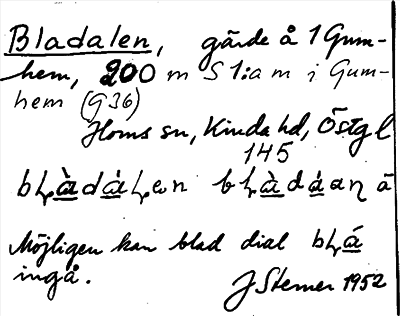 Bladalen, gärde å 1 Gum-
hem, 200 m S 1:a m i Gum-
hem (G36)
Horns sn, Kinda hd, Östgl
145
Möjligen kan blad dial
ingå. J Sterner 1952